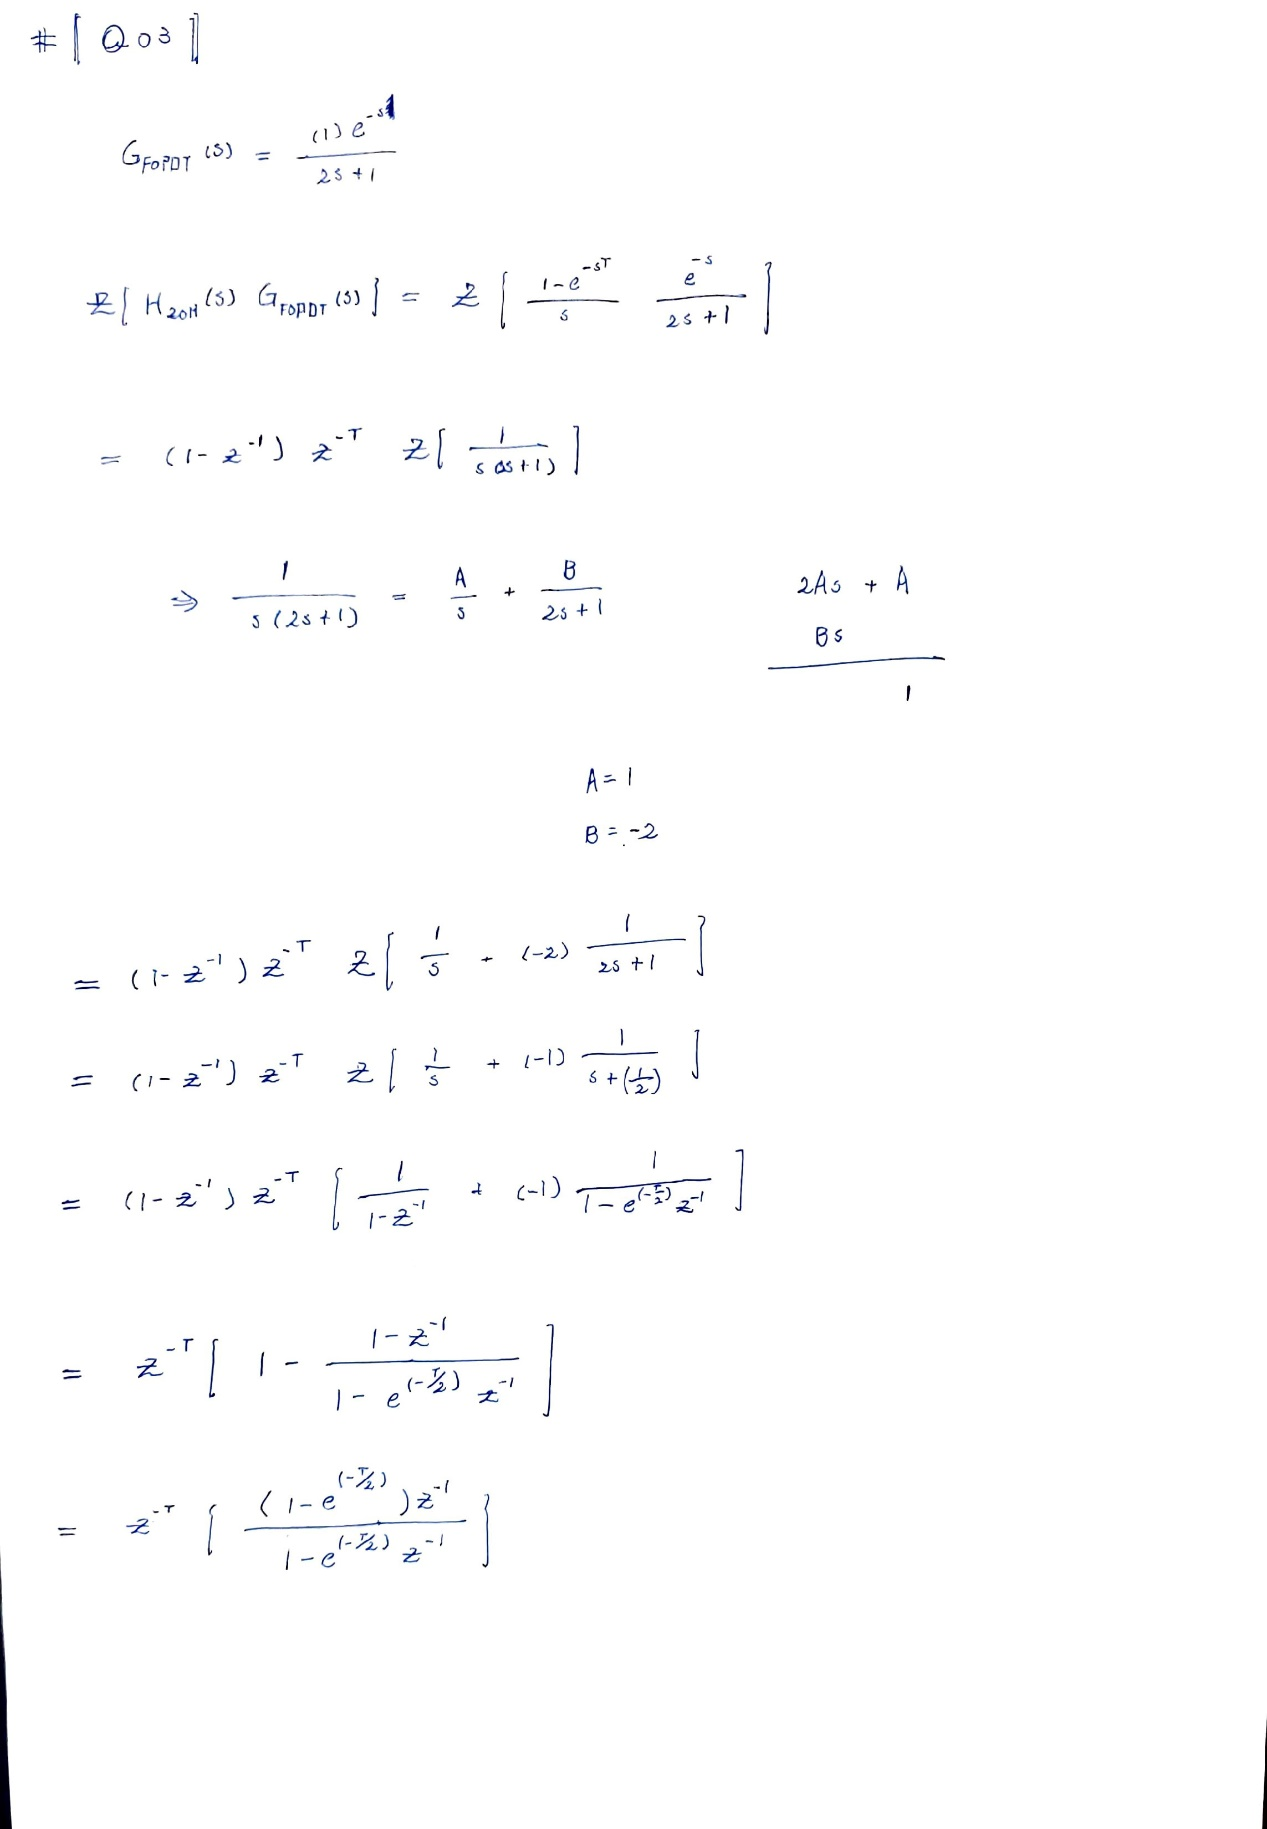 # [ Q03 ]
G_FOPDT (s) = (1) e^{-s1} / (2s+1)
Z[ H_ZOH (s) G_FOPDT (s) ] = Z [ (1-e^{-sT})/s  e^{-s}/(2s+1) ]
= (1-z^{-1}) z^{-T} Z[ 1/(s(2s+1)) ]
⇒ 1/(s(2s+1)) = A/s + B/(2s+1)
2As + A
Bs
1
A = 1
B = -2
= (1-z^{-1}) z^{-T} Z[ 1/s + (-2) 1/(2s+1) ]
= (1-z^{-1}) z^{-T} Z[ 1/s + (-1) 1/(s+(1/2)) ]
= (1-z^{-1}) z^{-T} [ 1/(1-z^{-1}) + (-1) 1/(1-e^{(-T/2)} z^{-1}) ]
= z^{-T} [ 1 - (1-z^{-1})/(1-e^{(-T/2)} z^{-1}) ]
= z^{-T} [ (1-e^{(-T/2)}) z^{-1} / (1-e^{(-T/2)} z^{-1}) ]